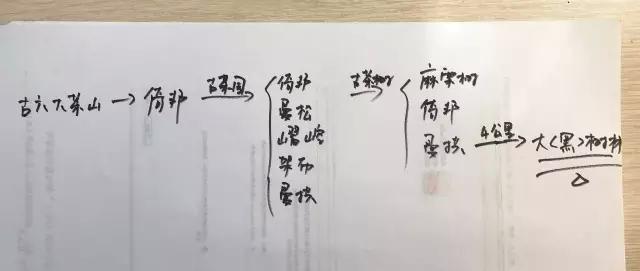 古六大茶山 → 倚邦
古茶园
倚邦
曼松
嶍崆
架布
曼拱
古茶树
麻栗树
倚邦
曼拱
4公里
大<黑>树林